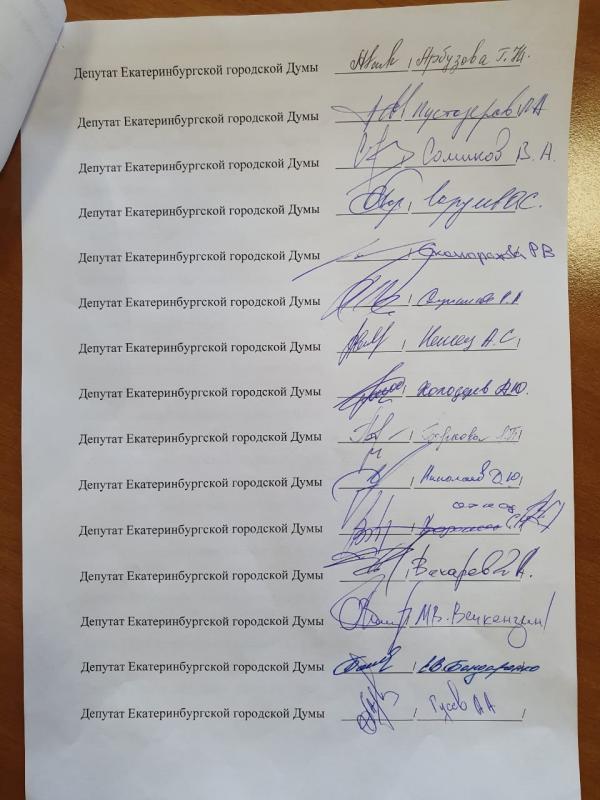 Депутат Екатеринбургской городской Думы / Арбузова Г.Н.
Депутат Екатеринбургской городской Думы / Пустозеров А
Депутат Екатеринбургской городской Думы / Сомиков В.А.
Депутат Екатеринбургской городской Думы
Депутат Екатеринбургской городской Думы РВ
Депутат Екатеринбургской городской Думы /
Депутат Екатеринбургской городской Думы / А.С. /
Депутат Екатеринбургской городской Думы / Холодарев А.Ю.
Депутат Екатеринбургской городской Думы /
Депутат Екатеринбургской городской Думы / Николаев Д.Ю. /
Депутат Екатеринбургской городской Думы /
Депутат Екатеринбургской городской Думы / Вихарев А.
Депутат Екатеринбургской городской Думы / М.В. Вечкензин /
Депутат Екатеринбургской городской Думы / Бондаренко
Депутат Екатеринбургской городской Думы / Гусев АА /